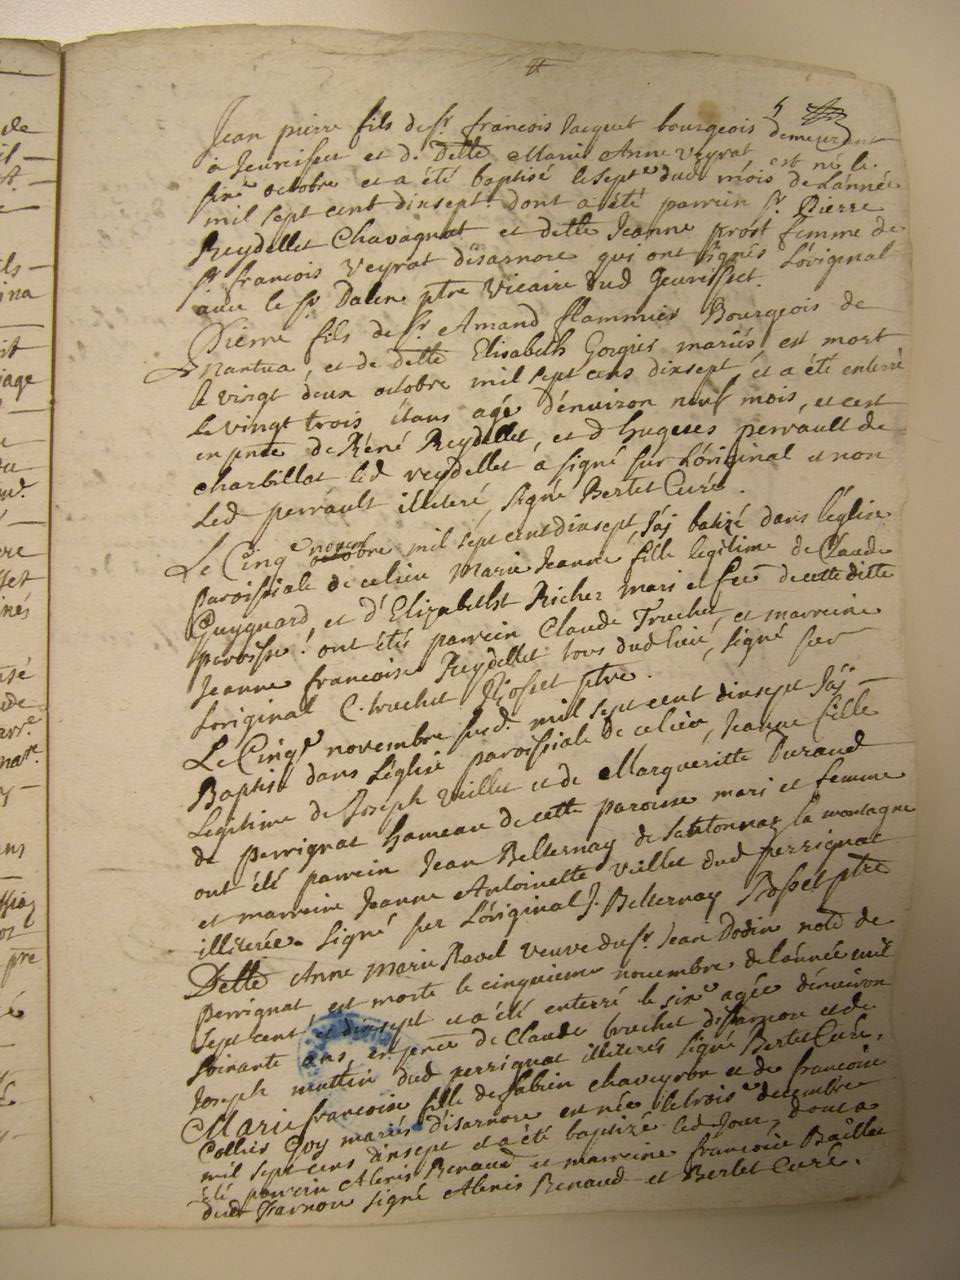 5
Jean pierre fils de Sr. francois Jacquet bourgeois demeurant
à Jeurissiat et d. delle Marie Anne veyrat est né le
sixe octobre et a été baptisé le septe dud mois de L'année
mil sept cent dixsept. dont a été parrein Sr. Pierre
Reydellet Chavagnat et delle Jeanne prost femme de
Sr francois Veyrat disarnore qui ont signés L'original
avec le Sr Dalen ptre Vicaire dud Jeurisset.
Pierre fils de Sr Amand flammier Bourgeois de
Nantua, et de delle Elisabeth Gorgres mariés est mort
le vingt deux octobre mil sept cens dixsept et a été enterré
le vingt trois étans agé d'environ neuf mois, et cest
en pnce de Réné Reydellet, et d'hugues perrault de
charbillat led reydellet a signé sur L'original et non
Led perrault illiteré, signé Bertet Curé.
Le Cinqe novem octobre mil sept cent dixsept, J'ai batizé dans l'église
paroissiale de ce lieu Marie Jeanne fille legitime de Claude
Guygnard, et d'Elizabethst Richez mari et fee de cette ditte
paroisse. ont étés parrein Claude Truchet, et marreine
Jeanne francoise Reydellet tous dud lieu, signé sur
L'original C. truchet Rosset ptre.
Le Cinqe novembre susd. mil sept cent dixsept J'ai
Baptisé dans L'église paroissiale de ce lieu, Jeanne fille
Legitime de Joseph Vuillet et de Margueritte Durand
de perrignat hameau de cette paroisse mari et femme
ont été parrein Jean Belternay de la montagne
et marreine Jeanne Antoinette Vuillet dud perrignat
illiterée. signé sur L'original J. Belternay Rosset ptre
Delle Anne Marie Ravel veuve du Sr. Jean Dodin not de
perrignat, est morte le cinquieme novembre de L'année mil
sept cent et dixsept et a été enterré le sixe agée d'environ
soixante ans, en pnce de Claude truchet disarnore et de
Joseph muttin dud perrignat illiterés signé Bertet Curé.
Marie francoise fille de fabien chaveyron et de francoise
Collies Guy mariés d'isarnore est née le trois decembre
mil sept cens dixsept et a été baptizé led Jour, dont a
été parrein Alexis Renaud et marreine francoise Baillet
dud Isarnore signé Alexis Renaud et Bertet Curé.